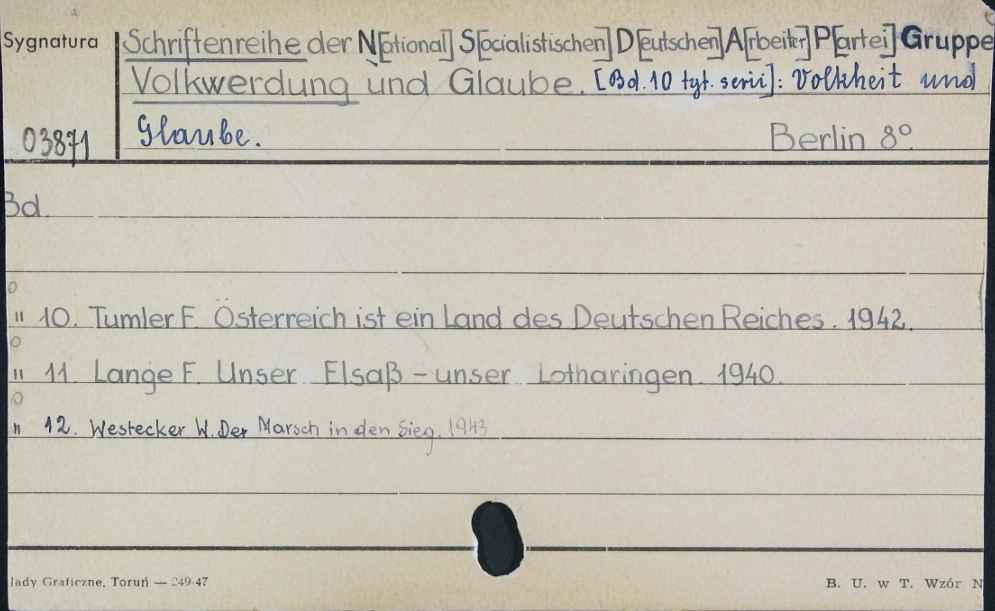 Sygnatura
Schriftenreihe der N[ational] S[ocialistischen] D[eutschen] A[rbeiter] P[artei] Gruppe
Volkwerdung und Glaube. [Bd. 10 tyt. serii]: Volkheit und
03871 Glaube. Berlin 8°.
Bd.
" 10. Tumler F. Österreich ist ein Land des Deutschen Reiches. 1942.
" 11. Lange F. Unser Elsaß - unser Lotharingen. 1940.
" 12. Westecker W. Der Marsch in den Sieg. 1943
lady Graficzne, Toruń — 249-47 B. U. w T. Wzór N